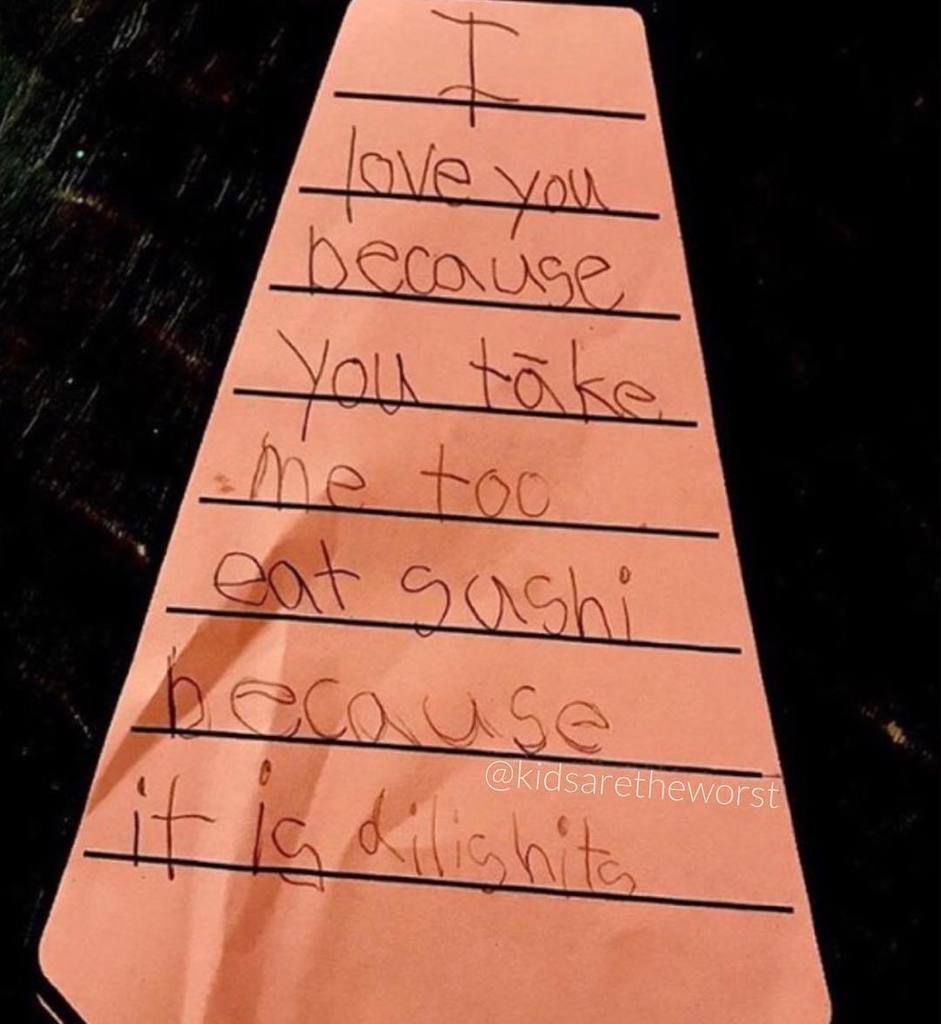 I
love you
because
you tāke
me too
eat sushi
because
@kidsaretheworst
it is dilishits